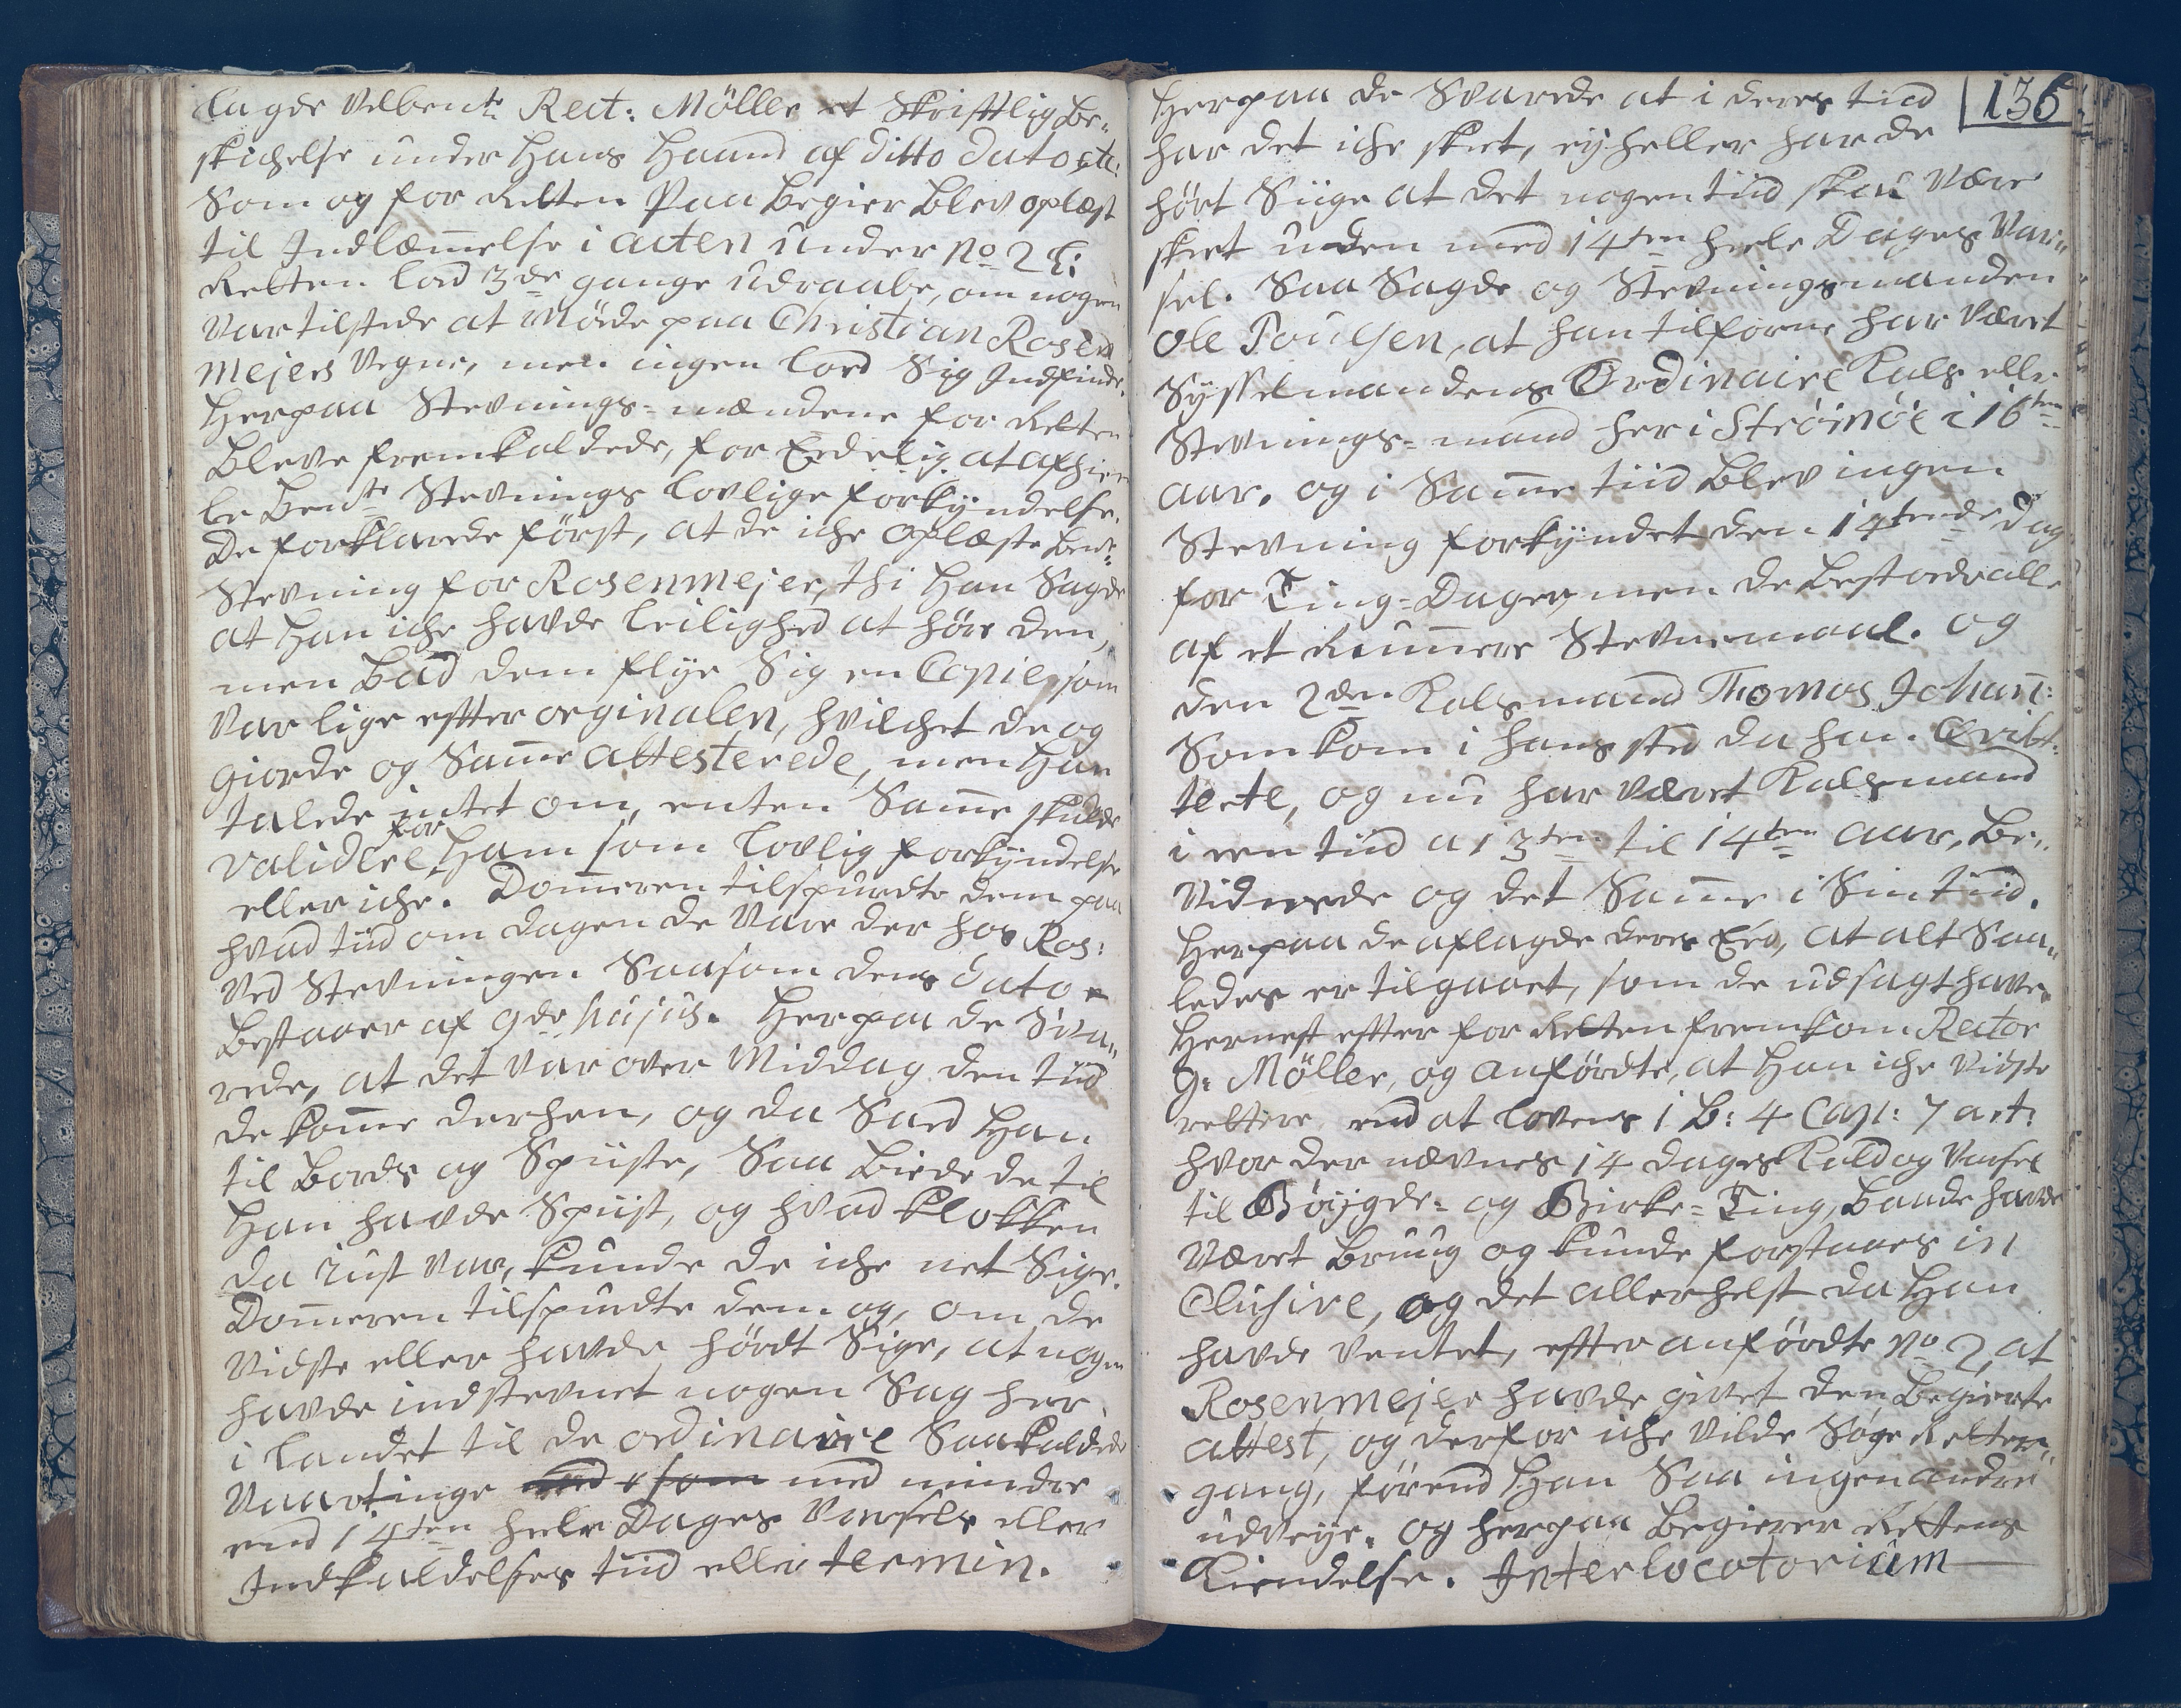 lagde Velbem.te Rect: Möller et Skrifftlig Be„
skichelse under Hans Haand af ditto dato etc:
Som og for Retten Paa Begier Blev oplæst
til Indlæm̅else i acten under No 2 L:
Retten lod 3de gange udraabe, om nogen
Var tilstede at Møde paa Christian Rosen
mejers Vegne, men ingen lod Sig Indfinde.
Herpaa Stevnings-mændene for Retten
Bleve fremkaldede, for Eedelig at afhiem
le Bem.te Stevnings lovlige forkyndelse.
De forklarede først, at de iche oplæste bem.te
Stevning for Rosenmejer, thi Han Sagde
at Han iche havde leilighed at høre den,
men Bad dem flye Sig en Copie, som
Var lige effter orginalen, hvilchet de og
giorde og Sam̅e attesterede, men Han
talede intet om, enten Sam̅e skulde
validere for Ham som lovlig forkyndelse
eller iche. Dom̅eren tilspurdte dem paa
hvad tiid om dagen de Vare der hos Ros:
Ved Stevningen Saasom dens dato
Bestaaer af 9de hujus. Herpaa de Sva„
rede, at det Var over Middag den tiid
de kom̅e derhen, og da Sad Han
til Bords og Spiiste, Saa Biede de til
Han havde Spiist, og hvad klokken
da just Var, kunde de iche net Sige.
Dom̅eren tilspurdte dem og, om de
Vidste eller havde hørdt Sige, at nogen
havde indstevnet nogen Sag her
i landet til de ordinaire Saakaldede
Vaartinge med mindre
end 14ten heele Dages Varsels eller
Indkaldelses tiid eller termin.
136
Herpaa de Svarede at i deres tiid
har det iche skeet, ey heller har de
hørt Siige at det nogen tiid skal være
skeet uden med 14ten heele Dages Var„
sel. Saa Sagde og Stevningsmanden
Ole Poulsen, at han tilforne har Været
Sysselmandens Ordinaire Kals eller
Stevnings-mand her i Strømøe i 16ten
aar. og i Sam̅e tiid Blev ingen
Stevning forkyndet den 14tende Dag
for Ting-Dagen, men de Bestod alle
af et Rum̅ere Stevnemaal. og
den 2den Kalsmand Thomas Johan̅:
Som kom i hans sted da han Qvit„
terte, og nu har Været Kalsmand
i een tiid a 13ten til 14ten aar, Be„
Vidnede og det Sam̅e i Sin tiid.
Herpaa de aflagde deres Eed, at alt Saa„
ledes er tilgaaet, som de udsagt have.
Hernest effter for Retten fremkom Rector
G: Möller, og anførdte, at Han iche Vidste
rettere end at lovens 1 B: 4 Cap: 7 art:
hvor der nævnes 14 dages Kald og Varsel
til Bøygde- og Birke-Ting, Baade havde
Været Bruug og kunde forstaaes in
Clusive, og det allerhelst da Han
havde Ventet, effter anførdte No 2, at
Rosenmejer havde givet den Begierte
attest, og derfor iche Vilde Søge Retter„
gang, førend Han Saa ingen andre
udveye. og herpaa Begierer Rettens
Kiendelse. Interlocotorium